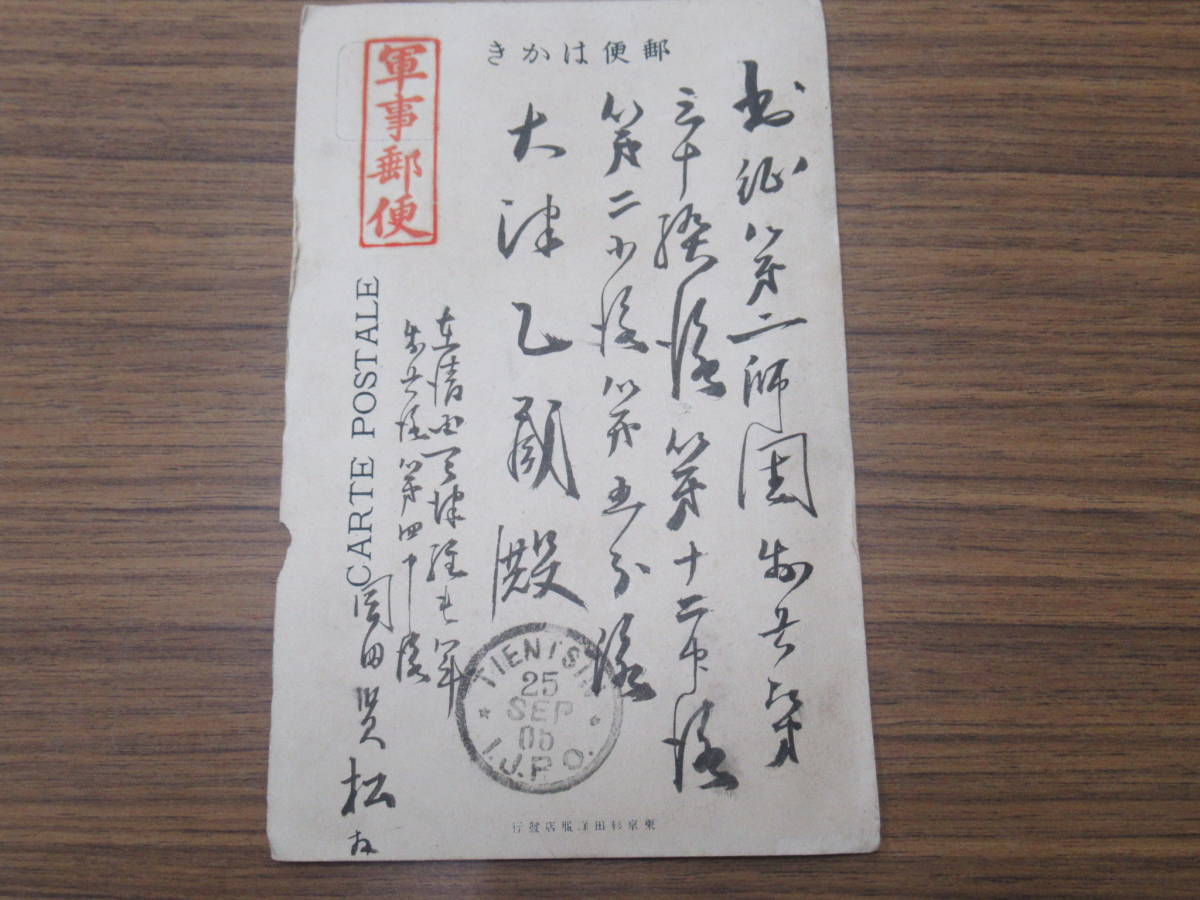 郵便はかき
出征第二師團歩兵第
三十聯隊第十二中隊
第二小隊第五分隊
大津乙蔵殿
軍事郵便
在清国天津駐屯軍
歩兵隊第四中隊
岡田買松
CARTE POSTALE
TIENTSIN
25
SEP
05
I.J.P.O.
東京杉田洋服店發行